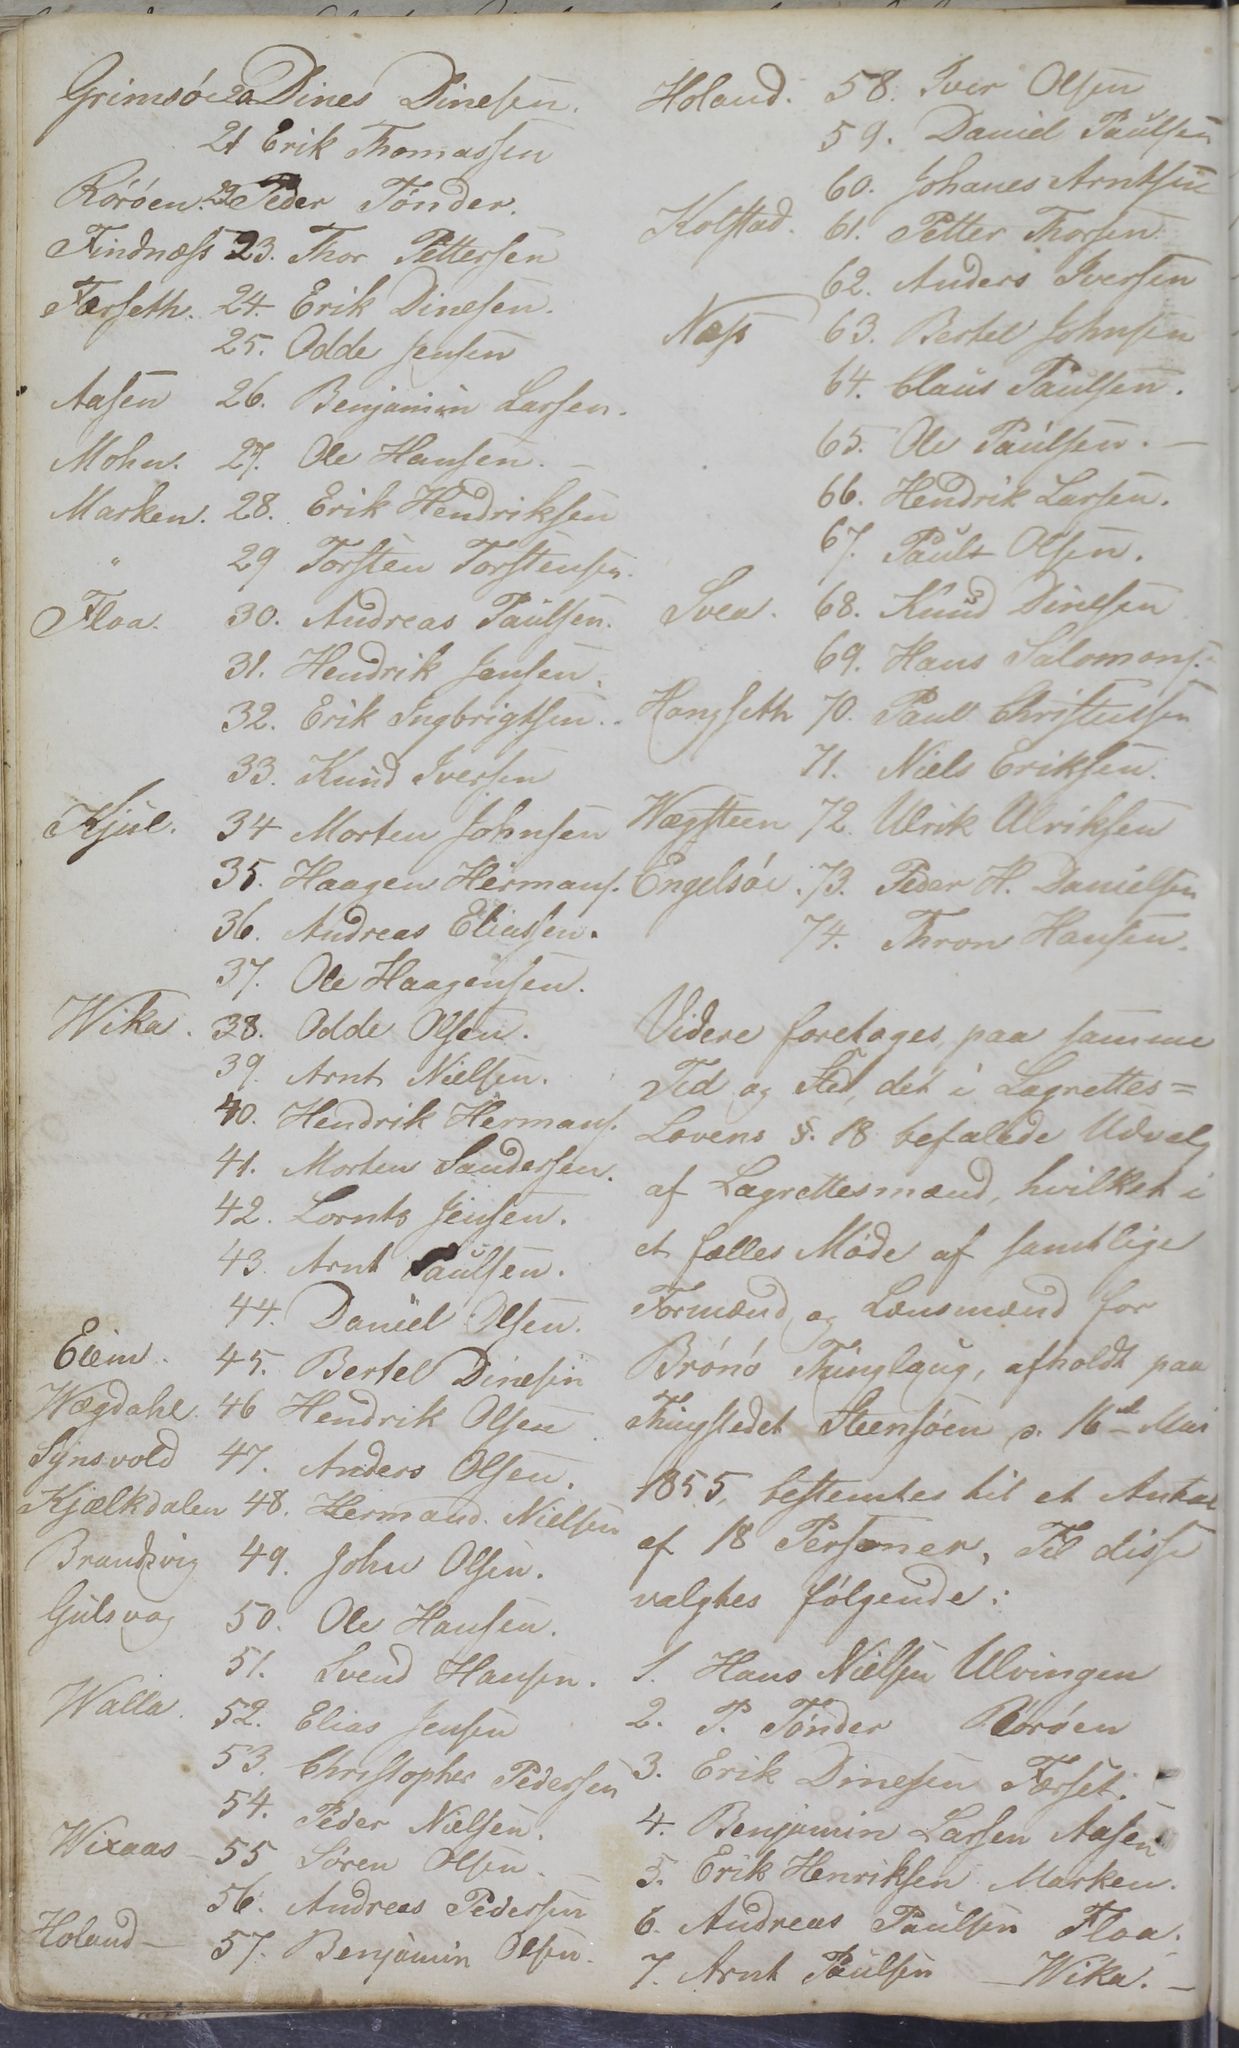 Grimsøe 20 Dines Dinesen.
21 Erik Thomassen
Rørøen. 22 Peder Tønder.
Findnæss 23. Thor Pettersen
Færseth. 24. Erik Dinesen.
25. Odde Jensen
Aasen 26. Benjamin Larsen.
Mohn. 27. Ole Hansen. –
Marken. 28. Erik Hendriksen
" 29 Torsten Torstensen.
Floa. 30. Andreas Paulsen.
31. Hendrik Jensen.
32. Erik Ingbrigtsen.
33. Knud Iversen
Kjul. 34 Morten Johnsen
35. Haagen Hermans.
36. Andreas Eliassen.
37. Ole Haagensen.
Wika. 38. Odde Olsen.
39. Arnt Nielsen.
40. Hendrik Hermans.
41. Morten Sandersen.
42. Lornts Jensen.
43. Arnt Paulsen.
44. Daniel Olsen.
Eiem. 45. Bertel Dinesen
Wægdahl. 46 Hendrik Olsen
Synsvold 47. Anders Olsen.
Kjælkdalen 48. Hermand Nielsen
Brandsvig 49. John Olsen.
Gulsvog 50. Ole Hansen.
51. Svend Hansen.
Walla. 52. Elias Jensen
53. Christopher Pedersen
54. Peder Nielsen.
Wixaas – 55 Søren Olsen. –
56. Andreas Pedersen
Holand – 57. Benjamin Olsen.
Holand. 58. Iver Olsen
59. Daniel Paulsen
60. Johanes Arntsen
Kolstad. 61. Petter Thorsen
62. Anders Iversen
Næss 63. Bertel Johnsen
64. Claus Paulsen.
65. Ole Paulsen. –
66. Hendrik Larsen.
67. Paul Olsen.
Svea. 68. Knud Dinesen
69. Hans Salomons.
Hongseth 70. Paul Christensen
71. Niels Eriksen.
Wægsteen 72. Ulrik Ulriksen
Engelsøe. 73. Peder H. Danielsen
74. Thron Hansen.
Videre foretoges, paa samme
Tid og Sted, det i Lagrettes=
Lovens §. 18 befalede Udvalg
af Lagrettesmænd, hvilket i
et fælles Møde af samtlige
Formænd og Lensmænd for
Brønø Thinglaug, afholdt paa
Thingstedet Steensøen d. 16de Mai
1855, bestemtes til et Antal
af 18 Personer, Til disse
valgtes følgende:
1. Hans Nielsen Ulvingen
2. P. Tønder Rørøen
3. Erik Dinesen Færset.
4. Benjamin Larsen Aasen
5. Erik Henriksen Marken.
6. Andreas Paulsen Floa.
7. Arnt Paulsen – Wika. –